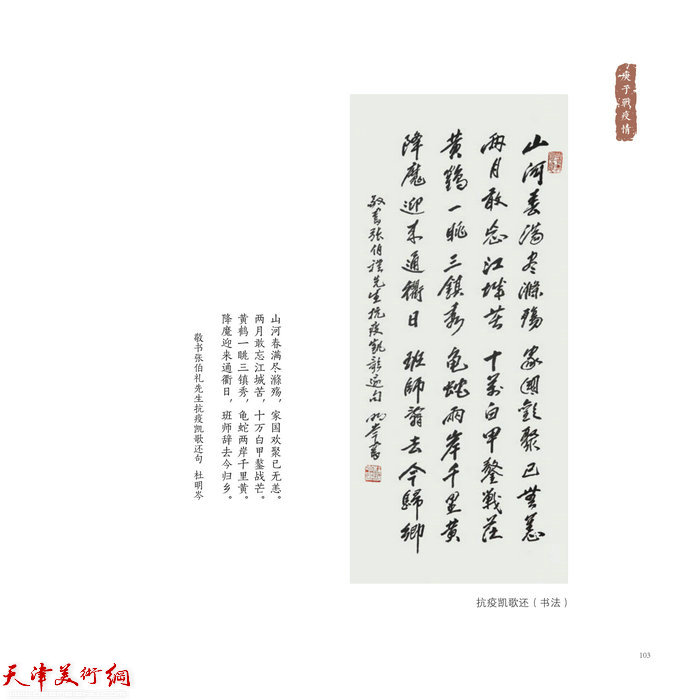 庚子戰疫情
山河春满尽滌殤 家國歡聚已無恙
兩月敢忘江城苦 十萬白甲鏖戰茫
黄鶴一眺三鎮秀 龜蛇兩岸千里黄
降魔迎来通衢日 班師辭去今歸鄉
敬書張伯禮先生抗疫凱歌還句 明岑書
山河春满尽滌殇，家国欢聚已无恙。
两月敢忘江城苦，十万白甲鏖战芒。
黄鹤一眺三镇秀，龟蛇两岸千里黄。
降魔迎来通衢日，班师辞去今归乡。
敬书张伯礼先生抗疫凯歌还句 杜明岑
抗疫凯歌还（书法）
103
天津美術網